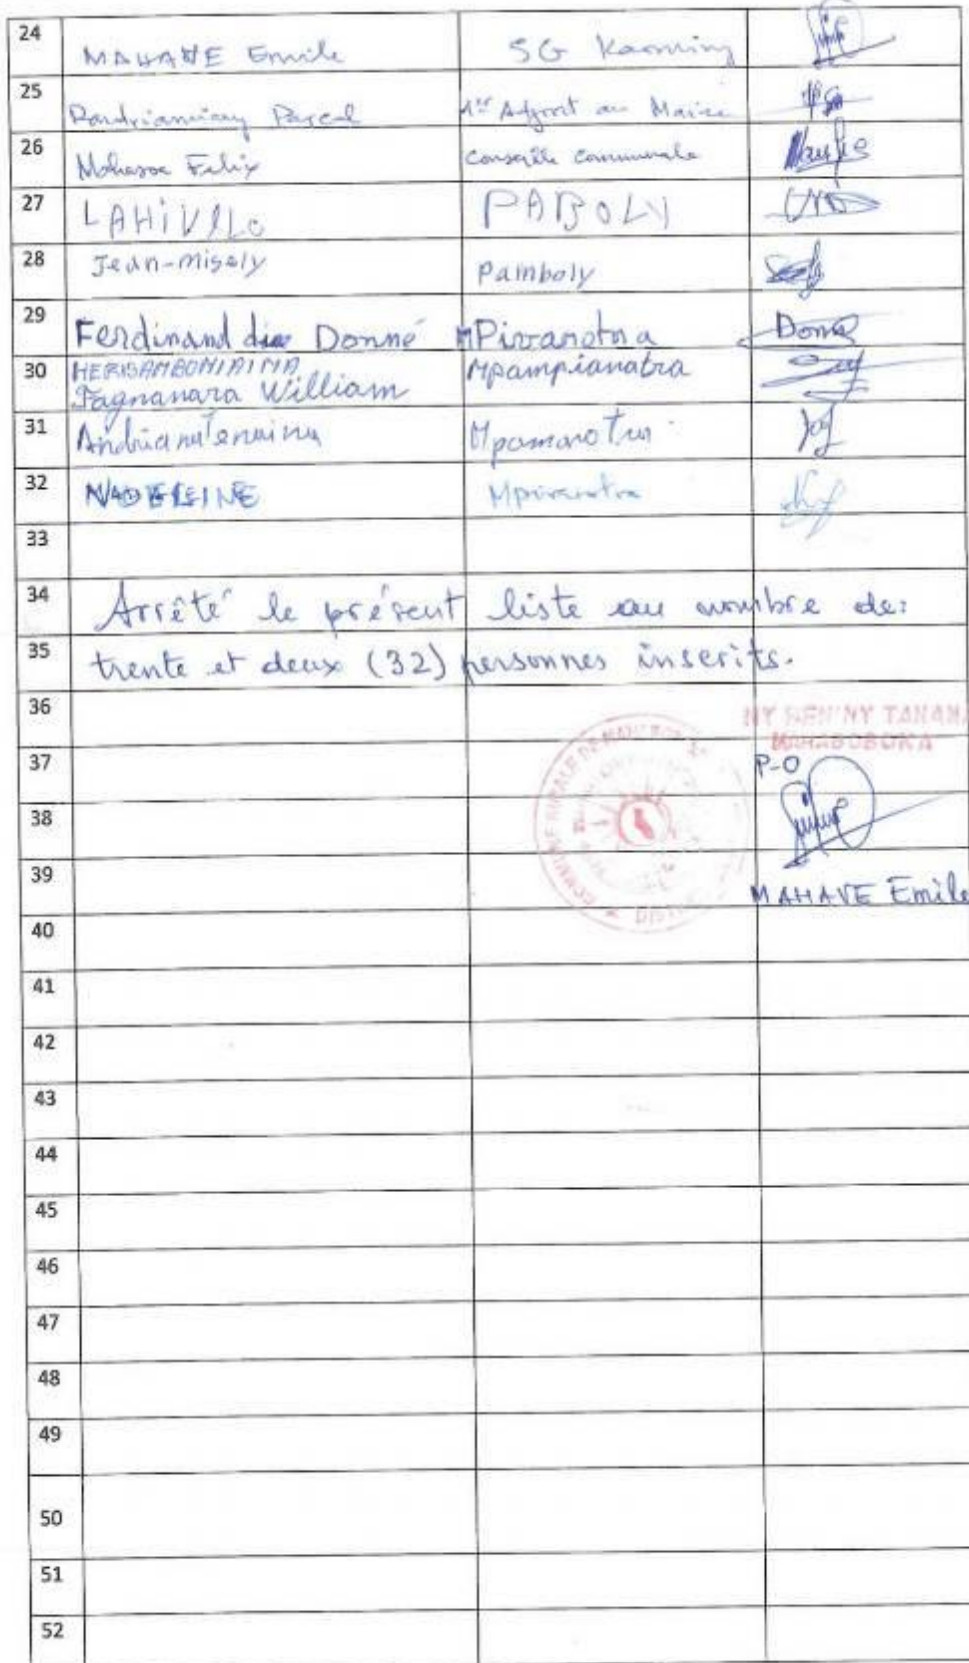 24 MAHAVE Emile SG Kaominy
25 Pascal 1er Adjoint au Maire
26 Mohasoa Felix conseille communale
27 LAHIVELO PABOLY
28 Jean-misely Pamboly
29 Ferdinand dieu Donné MPivarotna Donné
30 HERISAMBONIAINA Mpampianatra
Fagnanara William
31 Mpamarotra
32 MADELEINE Mpivarotra
33
34 Arrêté le présent liste au nombre de:
35 trente et deux (32) personnes inscrits.
36
NY BEN'NY TANANA
MAHABOBOKA
37 P-O
38
39 MAHAVE Emile
COMMUNE RURALE DE
40
41
42
43
44
45
46
47
48
49
50
51
52